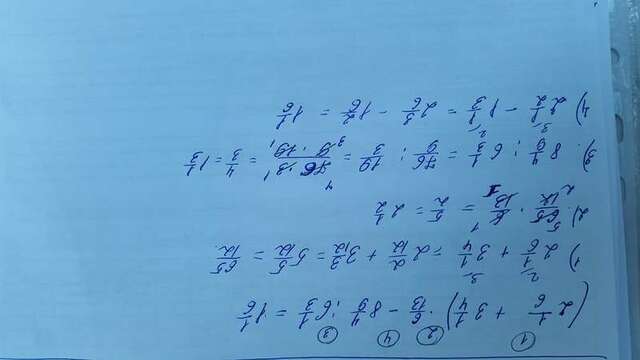 ① ② ④ ③
(2 1/6 + 3 1/4) · 6/13 - 8 4/9 : 6 1/3 = 1 1/6
1) 2 1/6 + 3 1/4 = 2 2/12 + 3 3/12 = 5 5/12 = 65/12.
2) 65/12 · 6/13 = 5/2 = 2 1/2
3) 8 4/9 : 6 1/3 = 76/9 : 19/3 = 76 · 3 / 9 · 19 = 4/3 = 1 1/3
4) 2 1/2 - 1 1/3 = 2 3/6 - 1 2/6 = 1 1/6